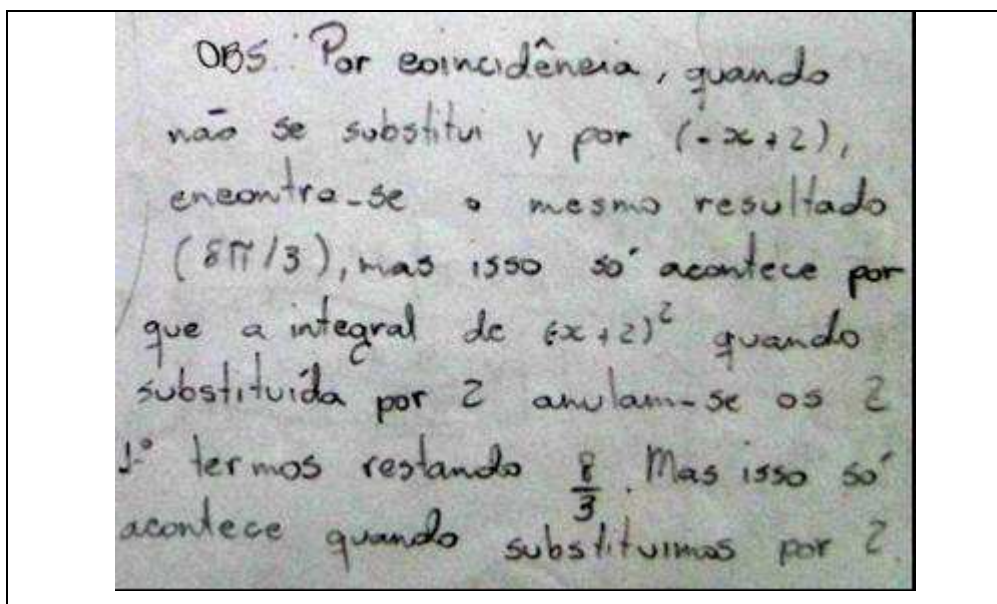 OBS: Por coincidência, quando
não se substitui y por (-x+2),
encontra-se o mesmo resultado
(8π/3), mas isso só acontece por
que a integral de (-x+2)² quando
substituída por 2 anulam-se os 2
1º termos restando 8/3. Mas isso só
acontece quando substituimos por 2.